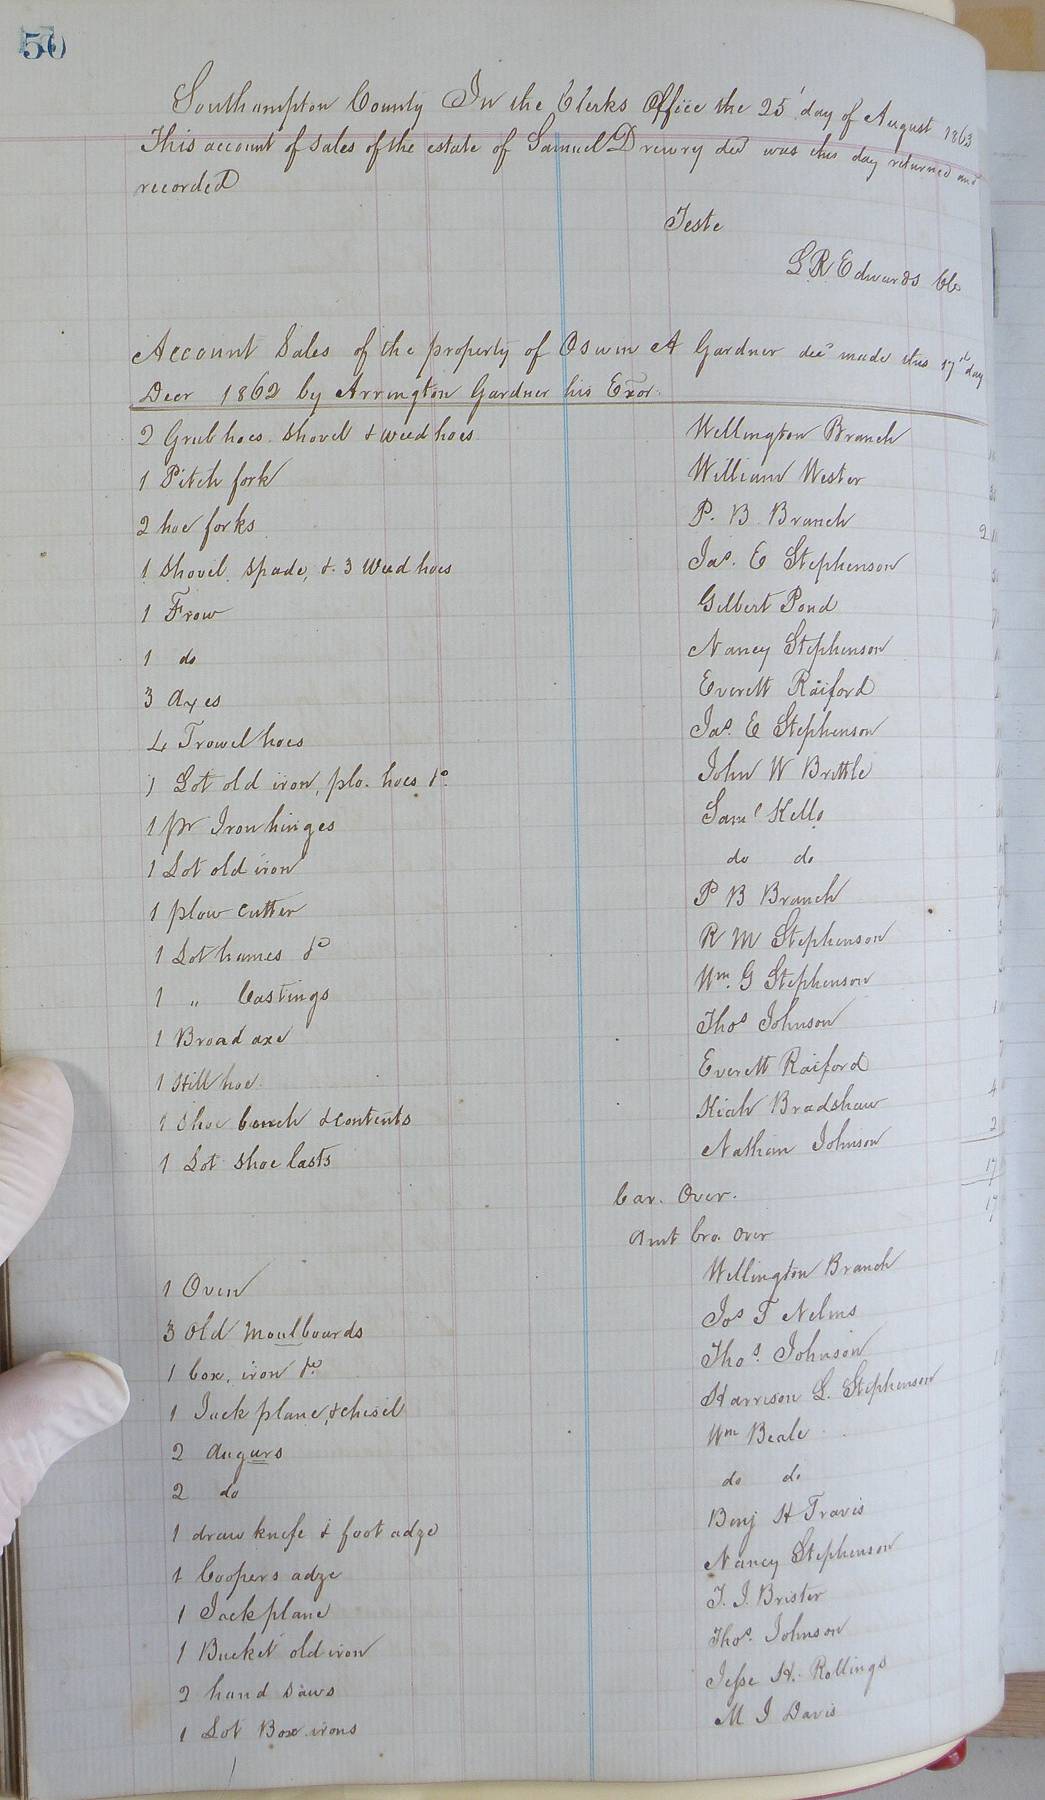 50
Southampton County In the Clerks Office the 25 day of August 1863
This account of sales of the estate of Samuel Drewry decd was this day returned and
recorded
Teste
L R Edwards Clk
Account Sales of the property of Oswin A Gardner decd made this 17th day
Decr 1862 by Arrington Gardner his Exor.
2 Grub hoes. Shovel & weed hoes Wellington Branch
1 Pitch fork William Wester
2 hoe forks P. B. Branch 2
1 Shovel, Spade, & 3 Weed hoes Jas. E Stephenson
1 Frow Gilbert Pond
1 do Nancy Stephenson
3 Axes Everett Raiford
4 Trowel hoes Jas. E Stephenson
1 Lot old iron, plo. hoes &c John W Brittle
1 pr Iron hinges Saml Kello
1 Lot old iron do do
1 plow cutter P B Branch
1 Lot hames &c R M Stephenson
1 " Castings Wm. G Stephenson
1 Broad axe Thos Johnson
1 Hill hoe Everett Raiford
1 Shoe bench & contents Kiah Bradshaw 4
1 Lot Shoe lasts Nathan Johnson 2
Car. Over. 17
Amt bro. over 17
1 Oven Wellington Branch
3 Old Moulboards Jos T Nelms
1 box, iron &c Thos. Johnson
1 Jack plane, & chisel Harrison L. Stephenson
2 Augurs Wm Beale
2 do do do
1 draw knife & foot adze Benj H Travis
1 Coopers adze Nancy Stephenson
1 Jackplane T. J. Brister
1 Bucket old iron Thos. Johnson
2 hand Saws Jesse H. Rollings
1 Lot Box irons M J Davis